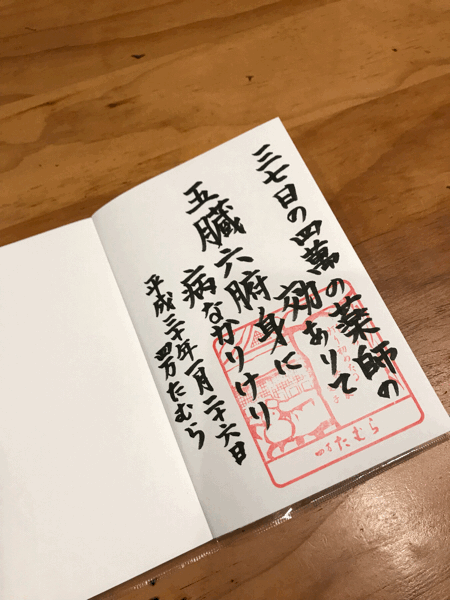 三七日の四萬の薬師の
効ありて
五臓六腑身に
病なかりけり
平成三十年一月二十六日
四万たむら
四万 たむら